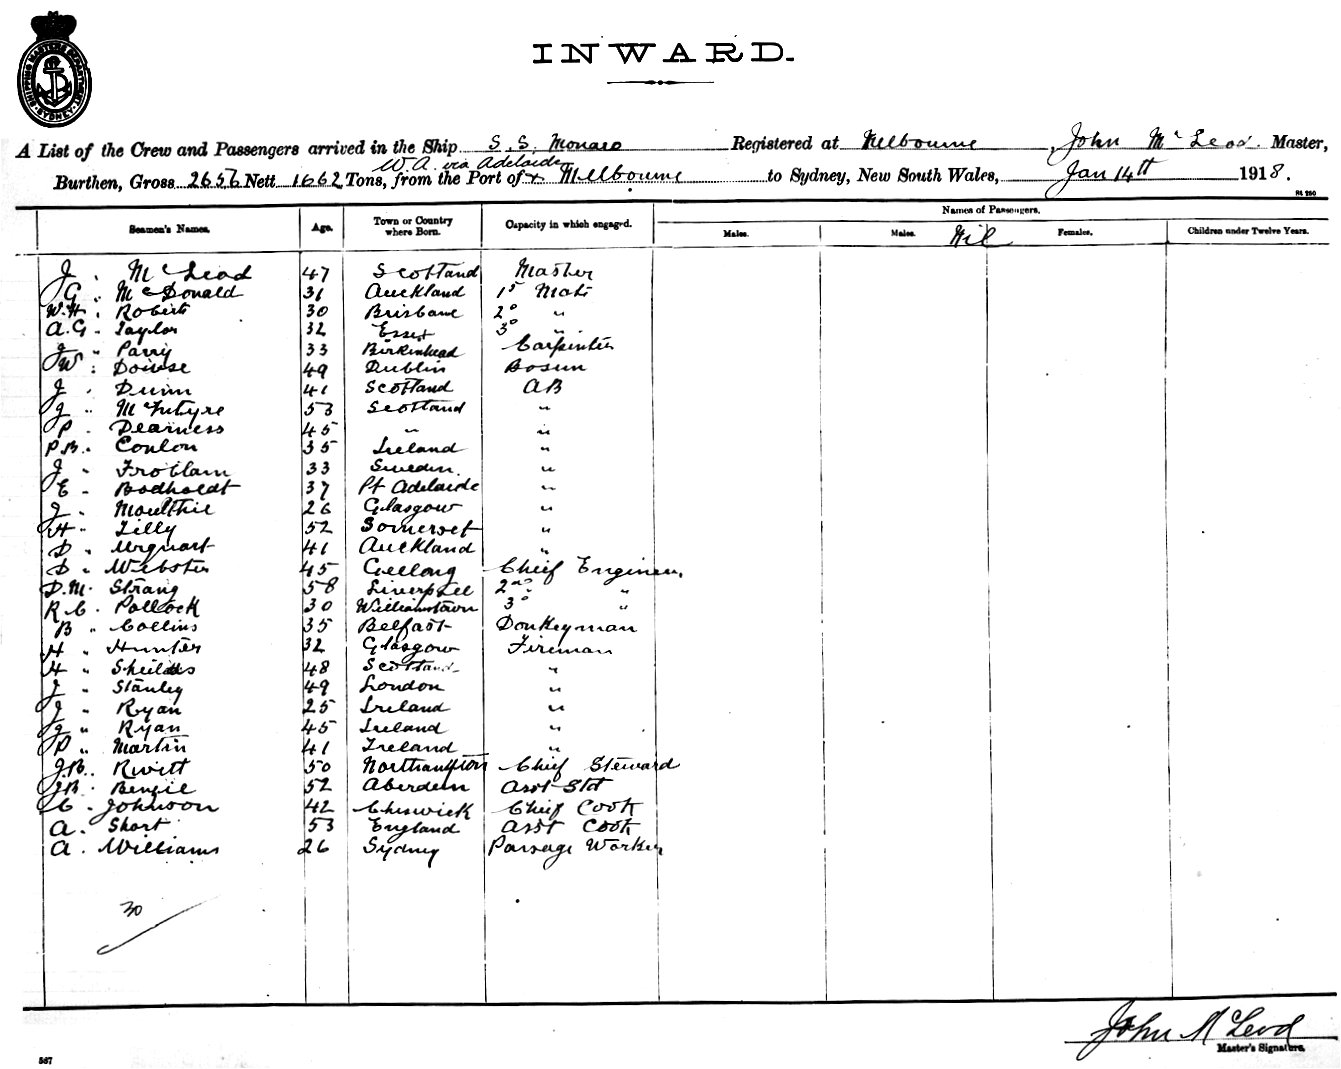 SHIPPING MASTERS DEPARTMENT SYDNEY
INWARD.
A List of the Crew and Passengers arrived in the Ship S.S. Monaro Registered at Melbourne, John McLeod. Master,
W.A. via Adelaide
Burthen, Gross 2656 Nett 1662 Tons, from the Port of + Melbourne to Sydney, New South Wales, Jan 14th 1918.
Seamen's Names. Age. Town or Country where Born. Capacity in which engaged. Names of Passengers.
Males. Males. Nil Females. Children under Twelve Years.
J. McLeod 47 Scotland Master
G. McDonald 31 Auckland 1st Mate
W.H. Roberts 30 Brisbane 2° "
A.G. Taylor 32 Essex 3° "
J. Parry 33 Birkinhead Carpenter
W. Dowse 49 Dublin Bosun
J. Dunn 41 Scotland AB
J. McIntyre 53 Scotland "
P. Dearness 45 " "
P.B. Conlon 35 Ireland "
J. 33 Sweden. "
E. Bodholdt 37 Pt Adelaide "
J. Moulthie 26 Glasgow "
H. Lilly 52 Somerset "
D. Urquart 41 Auckland "
D. Webster 45 Geelong Chief Engineer.
D.M. Strang 58 Liverpool 2nd "
R.C. Pollock 30 Williamstown 3° "
B. Collins 35 Belfast Donkeyman
H. Hunter 32 Glasgow Fireman
H. Sheilds 48 Scotland "
J. Stanley 49 London "
J. Ryan 25 Ireland "
J. Ryan 45 Ireland "
P. Martin 41 Ireland "
J.B. Rivitt 50 Northampton Chief Steward
J.B. Benzie 52 Aberdeen Asst Std
C. Johnson 42 Cheswick Chief Cook
A. Short 53 England Asst Cook
A. Williams 26 Sydney Passage Worker
30
John McLeod
Master's Signature.
567